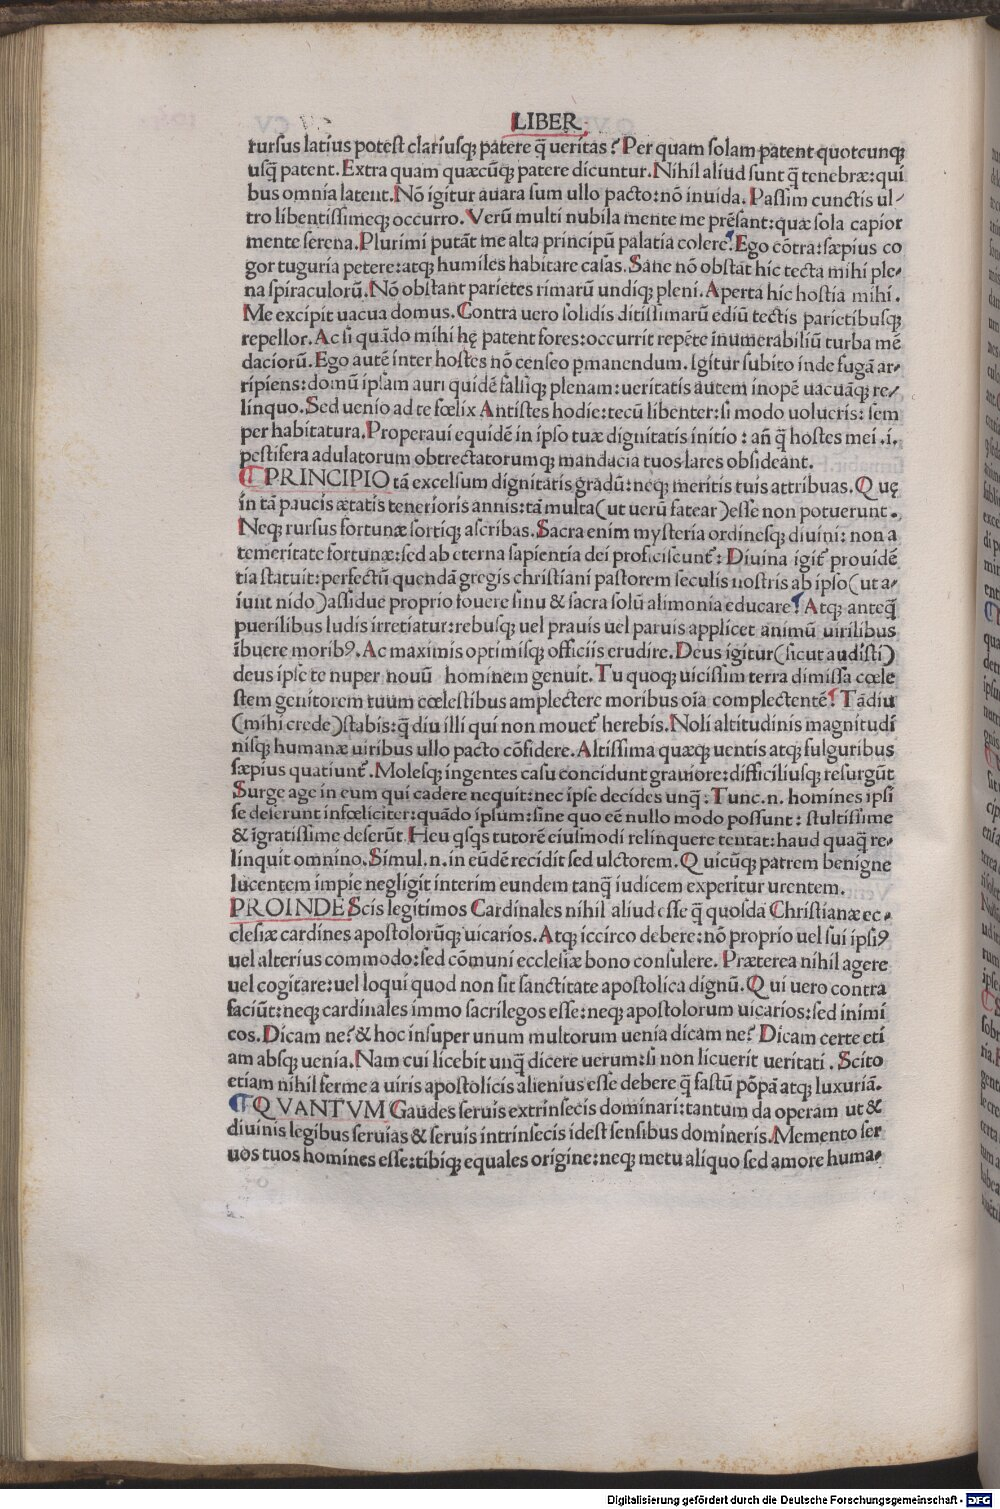 LIBER
rursus latius potest clariusq; patere q̄ ueritas? Per quam solam patent quotcunq;
usq̄ patent. Extra quam quæcūq; patere dicuntur. Nihil aliud sunt q̄ tenebræ: qui
bus omnia latent. Nō igitur auara sum ullo pacto: nō inuida. Passim cunctis ul-
tro libentissimeq; occurro. Verū multi nubila mente me prēsant: quæ sola capior
mente serena. Plurimi putāt me alta principū palatia colere. Ego cōtra: sæpius co
gor tuguria petere: atq; humiles habitare casas. Sane nō obstāt hic tecta mihi ple-
na spiraculorū. Nō obstant parietes rimarū undiq; pleni. Aperta hic hostia mihi.
Me excipit uacua domus. Contra uero solidis ditissimarū ediū tectis parietibusq;
repellor. Ac si quādo mihi hę patent fores: occurrit repēte inumerabiliū turba mē
daciorū. Ego autē inter hostes nō censeo pmanendum. Igitur subito inde fugā ar-
ripiens: domū ipsam auri quidē falsiq; plenam: ueritatis autem inopē uacuāq; re-
linquo. Sed uenio ad te fœlix Antistes hodie: tecū libenter: si modo uolueris: sem
per habitatura. Properaui equidē in ipso tuæ dignitatis initio: añ q̄ hostes mei .i.
pestifera adulatorum obtrectatorumq; mandacia tuos lares obsideant.
PRINCIPIO tā excelsum dignitatis gradū: neq; meritis tuis attribuas. Quę
in tā paucis ætatis tenerioris annis: tā multa (ut uerū fatear) esse non potuerunt.
Neq; rursus fortunæ sortiq; ascribas. Sacra enim mysteria ordinesq; diuini: non a
temeritate fortunæ: sed ab eterna sapientia dei proficiscunt̄: Diuina igit̄ prouidē
tia statuit: perfectū quendā gregis christiani pastorem seculis nostris ab ipso (ut a-
iunt nido) assidue proprio fouere sinu & sacra solū alimonia educare. Atq; anteq̄
puerilibus ludis irretiatur: rebusq; uel prauis uel paruis applicet animū uirilibus
ībuere moribꝰ. Ac maximis optimisq; officiis erudire. Deus igitur (sicut audisti)
deus ipse te nuper nouū hominem genuit. Tu quoq; uicissim terra dimissa cœle
stem genitorem tuum cœlestibus amplectere moribus oīa complectentē. Tādiu
(mihi crede) stabis: q̄ diu illi qui non mouet̄ herebis. Noli altitudinis magnitudi
nisq; humanæ uiribus ullo pacto cōfidere. Altissima quæq; uentis atq; fulguribus
sæpius quatiunt̄. Molesq; ingentes casu concidunt grauiore: difficiliusq; resurgūt
Surge age in eum qui cadere nequit: nec ipse decides unq̄: Tunc .n. homines ipsi
se deserunt infœliciter: quādo ipsum: sine quo eē nullo modo possunt: stultissime
& īgratissime deserūt. Heu qsqs tutorē eiusmodi relinquere tentat: haud quaq̄ re-
linquit omnino. Simul .n. in eūdē recidit sed ulctorem. Quicūq; patrem benigne
lucentem impie negligit interim eundem tanq̄ iudicem experitur urentem.
PROINDE Scis legitimos Cardinales nihil aliud esse q̄ quosdā Christianæ ec-
clesiæ cardines apostolorūq; uicarios. Atq; iccirco debere: nō proprio uel sui ipsiꝰ
uel alterius commodo: sed cōmuni ecclesiæ bono consulere. Præterea nihil agere
uel cogitare: uel loqui quod non sit sanctitate apostolica dignū. Qui uero contra
faciūt: neq; cardinales immo sacrilegos esse: neq; apostolorum uicarios: sed inimi
cos. Dicam ne? & hoc insuper unum multorum uenia dicam ne? Dicam certe eti
am absq; uenia. Nam cui licebit unq̄ dicere uerum: si non licuerit ueritati. Scito
etiam nihil ferme a uiris apostolicis alienius esse debere q̄ fastū pōpā atq; luxuriā.
QVANTVM Gaudes seruis extrinsecis dominari: tantum da operam ut &
diuinis legibus seruias & seruis intrinsecis idest sensibus domineris. Memento ser
uos tuos homines esse: tibiq; equales origine: neq; metu aliquo sed amore huma-
Digitalisierung gefördert durch die Deutsche Forschungsgemeinschaft - DFG